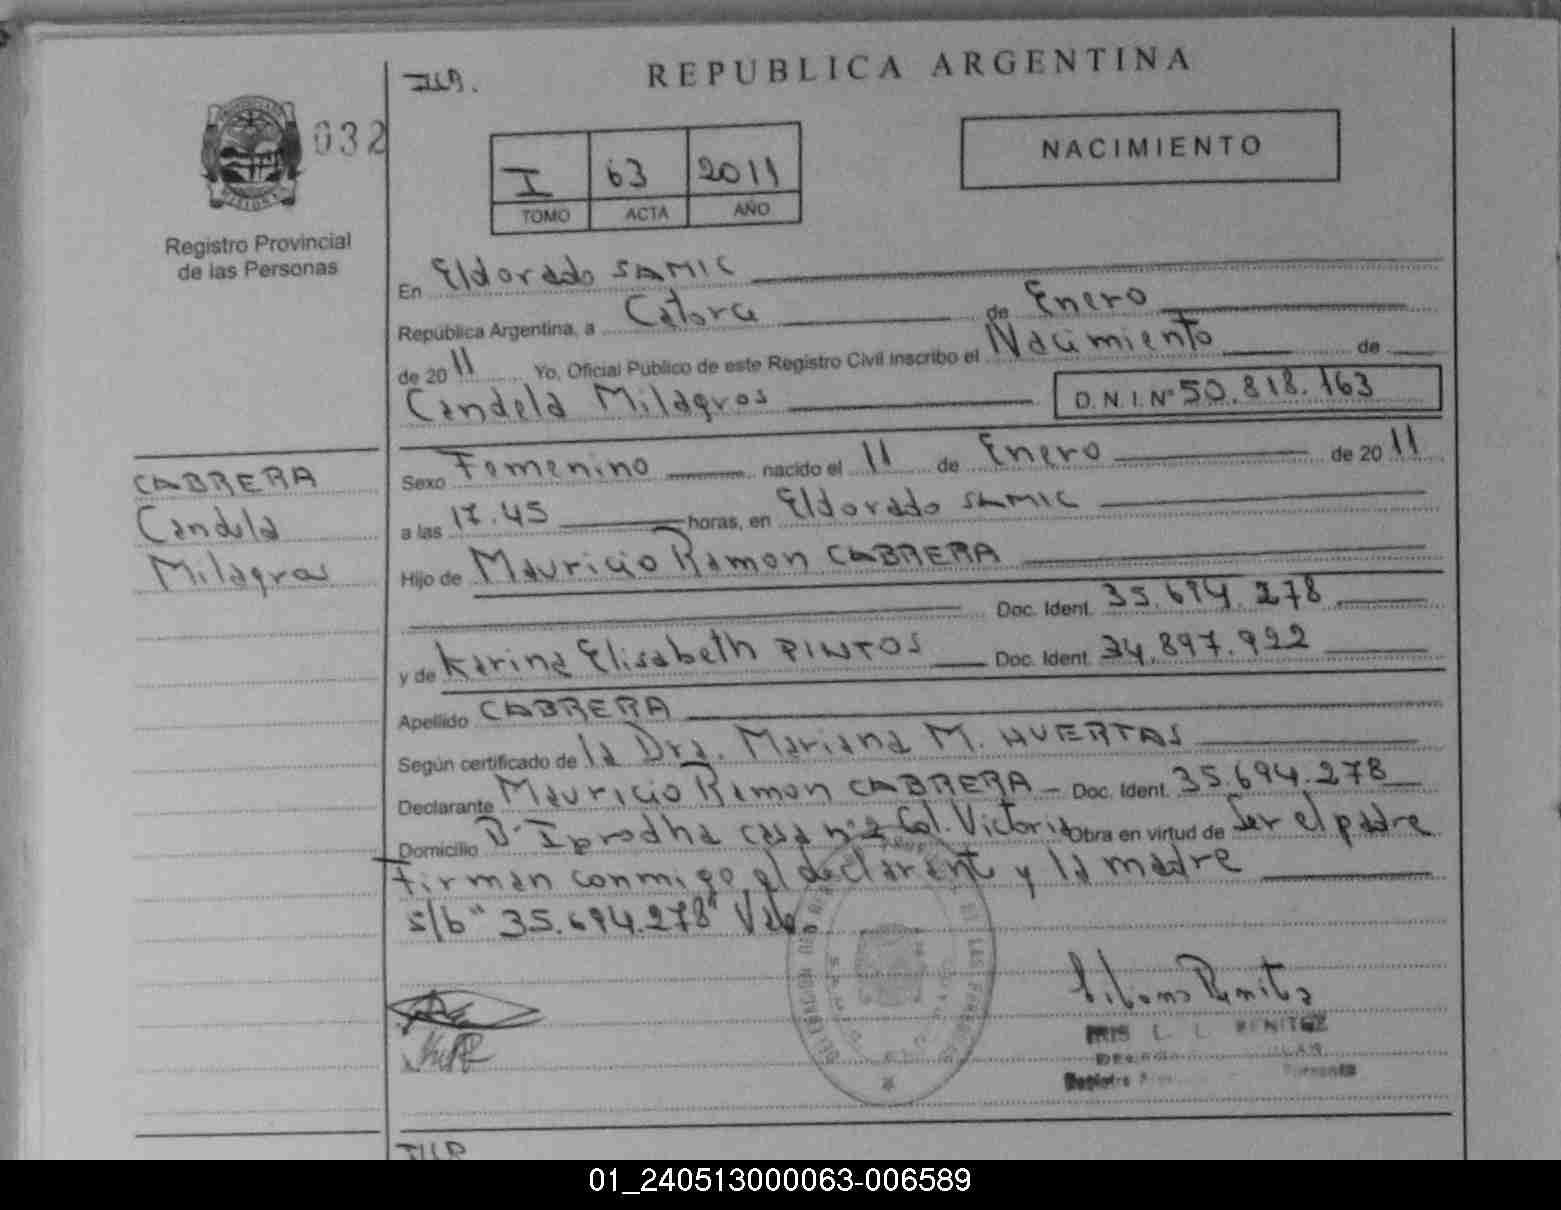 REPUBLICA ARGENTINA
032
NACIMIENTO
I 63 2011
TOMO ACTA AÑO
Registro Provincial
de las Personas
En Eldorado SAMIC
República Argentina, a Catorce de Enero
de 2011 Yo, Oficial Público de este Registro Civil inscribo el Nacimiento de
Candela Milagros D.N.I. Nº 50.818.163
CABRERA
Candela
Milagros
Sexo Femenino nacido el 11 de Enero de 2011
a las 17.45 horas, en Eldorado SAMIC
Hijo de Mauricio Ramon CABRERA
Doc. Ident. 35.694.278
y de Karina Elisabeth PINTOS Doc. Ident. 34.897.922
Apellido CABRERA
Según certificado de la Dra. Mariana M. HUERTAS
Declarante Mauricio Ramon CABRERA - Doc. Ident. 35.694.278
Domicilio Bº Iprodha casa nº 2 Col. Victoria Obra en virtud de Ser el padre
firman conmigo el declarante y la madre
s/b "35.694.278" Vale.
BENITEZ
01_240513000063-006589